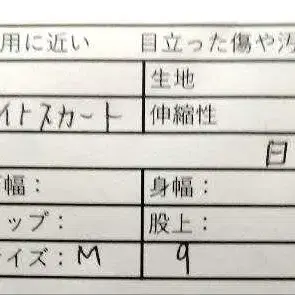 用に近い 目立った傷や汚
生地
イトスカート 伸縮性
日
幅： 身幅：
ップ： 股上：
イズ：M 9